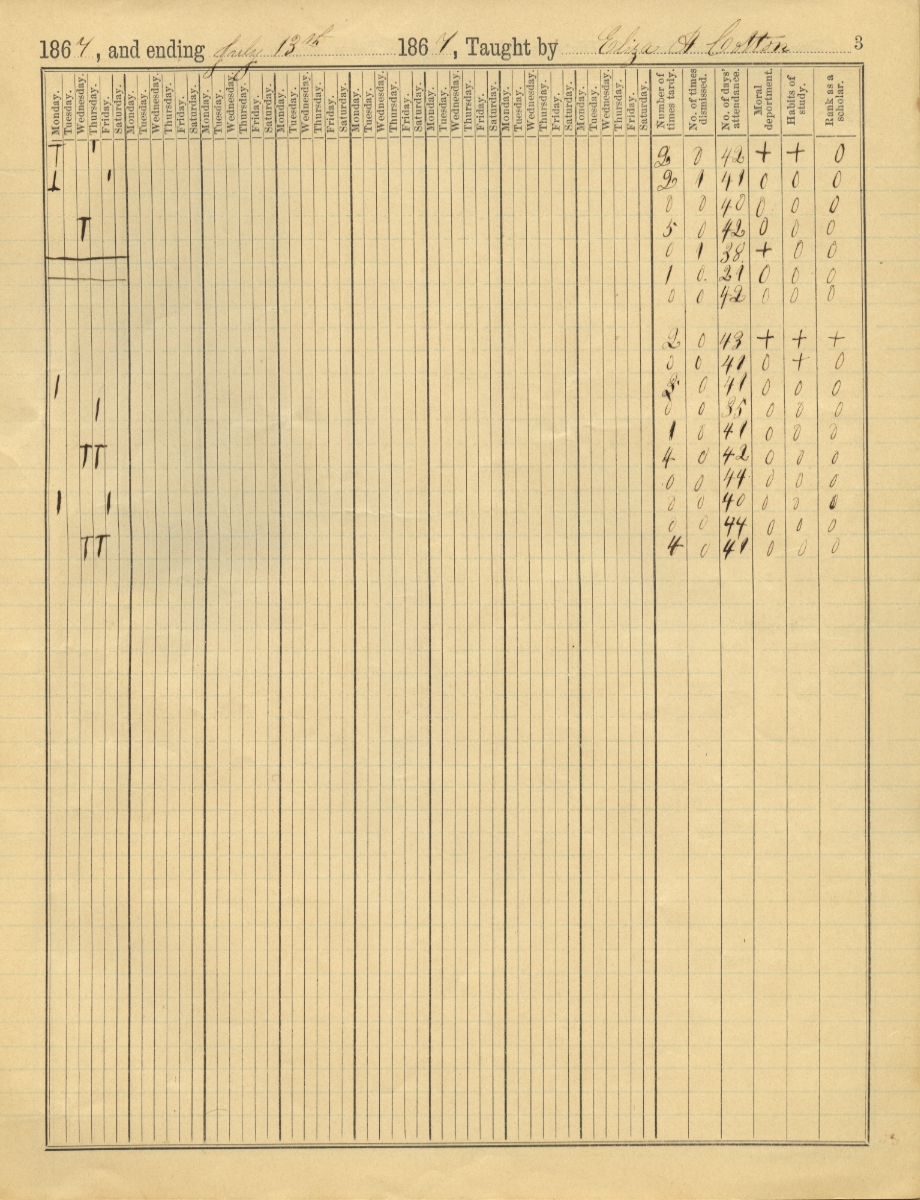 1867, and ending July 13th 1867, Taught by Eliza A Cotton 3
Monday. Tuesday. Wednesday. Thursday. Friday. Saturday. Monday. Tuesday. Wednesday. Thursday. Friday. Saturday. Monday. Tuesday. Wednesday. Thursday. Friday. Saturday. Monday. Tuesday. Wednesday. Thursday. Friday. Saturday. Monday. Tuesday. Wednesday. Thursday. Friday. Saturday. Monday. Tuesday. Wednesday. Thursday. Friday. Saturday. Monday. Tuesday. Wednesday. Thursday. Friday. Saturday. Monday. Tuesday. Wednesday. Thursday. Friday. Saturday. Number of times tardy. No. of times dismissed. No. of days' attendance. Moral deportment. Habits of study. Rank as a scholar.
T ' 2 0 42 + + 0
ı 2 1 41 0 0 0
0 0 40 0 0 0
T 5 0 42 0 0 0
0 1 38 + 0 0
1 0. 21 0 0 0
0 0 42 0 0 0
2 0 43 + + +
0 0 41 0 + 0
1 3 0 41 0 0 0
1 0 0 35 0 0 0
1 0 41 0 0 0
TT 4 0 42 0 0 0
0 0 44 0 0 0
1 1 0 0 40 0 0 0
0 0 44 0 0 0
TT 4 0 41 0 0 0